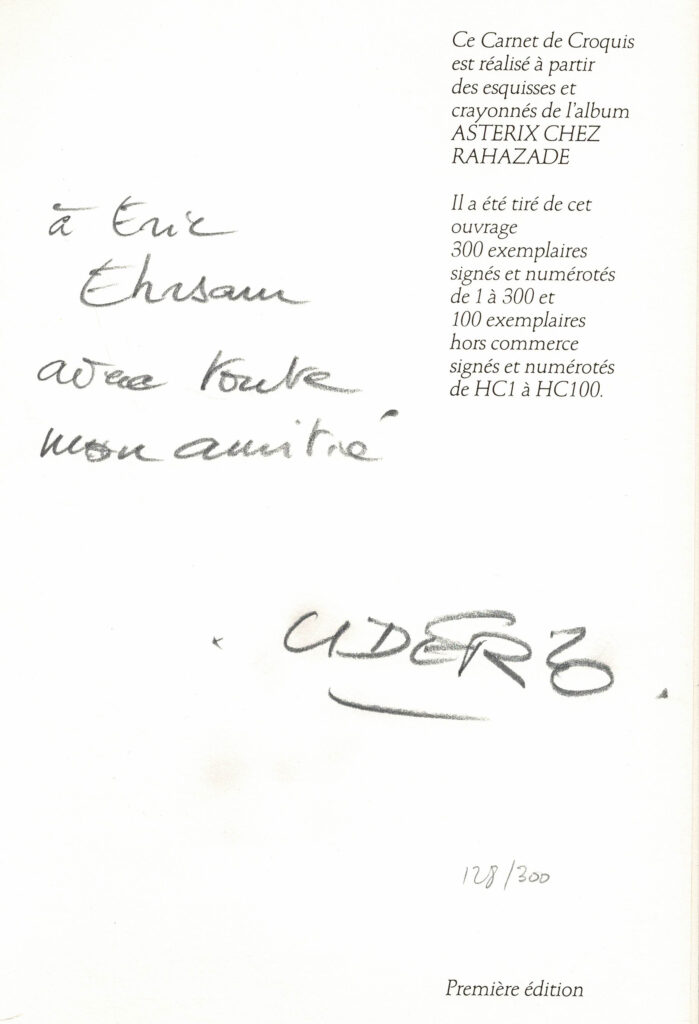 Ce Carnet de Croquis
est réalisé à partir
des esquisses et
crayonnés de l'album
ASTERIX CHEZ
RAHAZADE
Il a été tiré de cet
ouvrage
300 exemplaires
signés et numérotés
de 1 à 300 et
100 exemplaires
hors commerce
signés et numérotés
de HC1 à HC100.
à Eric
Ehrsam
avec toute
mon amitié
UDERZO.
128/300
Première édition